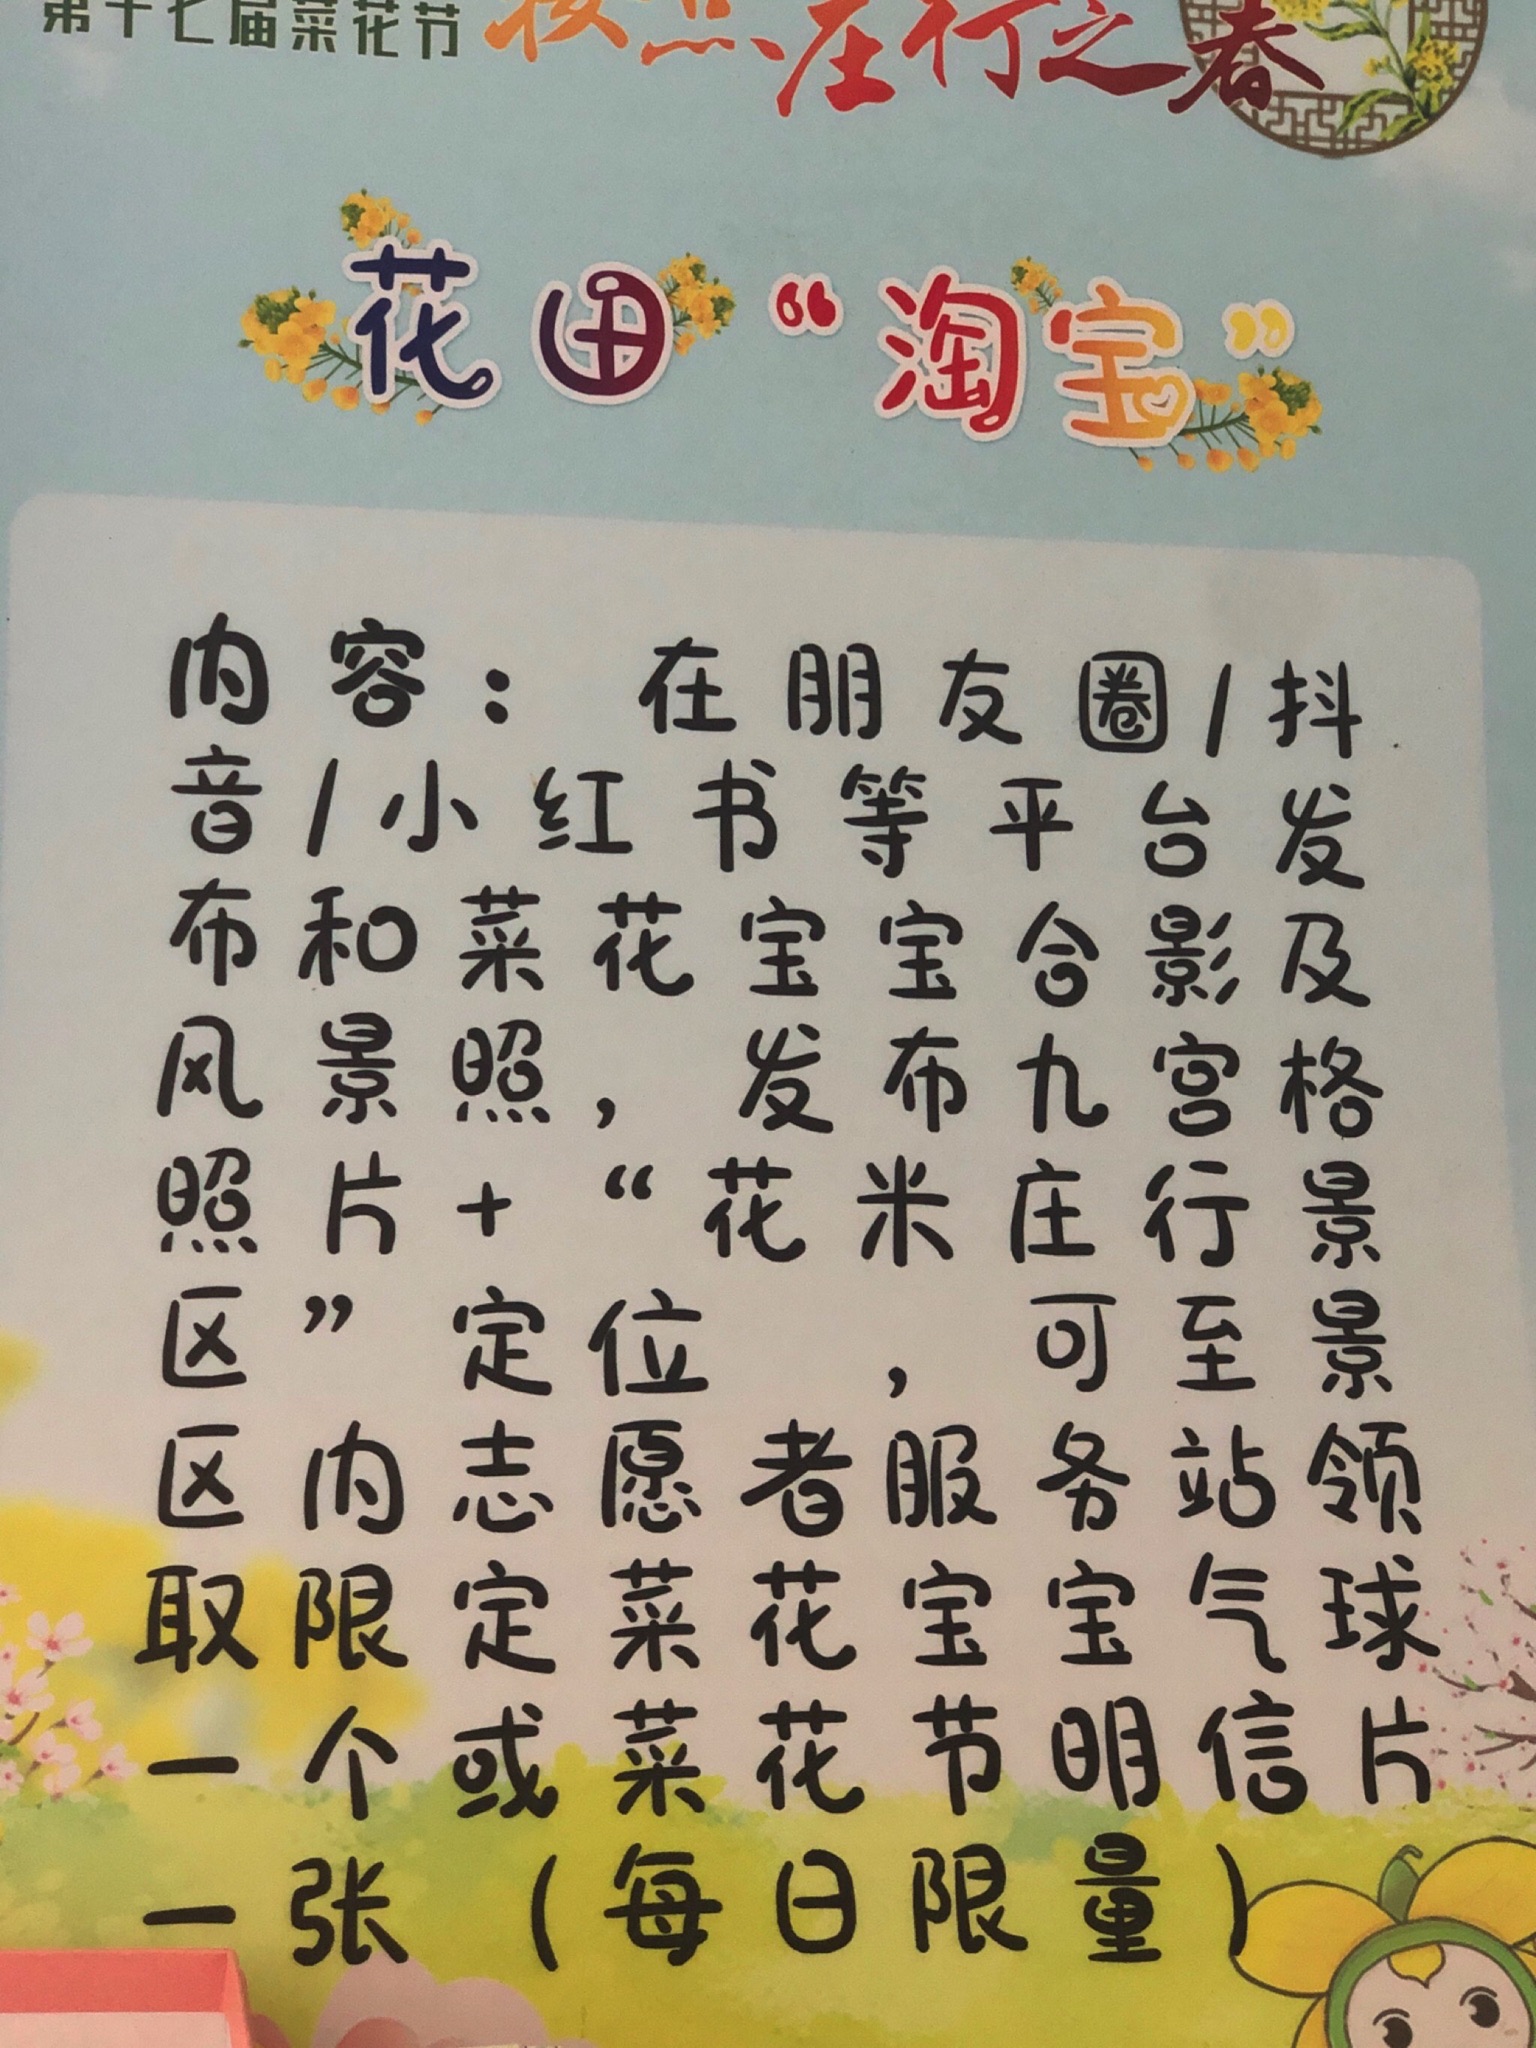 第十七届菜花节
庄行之春
花田“淘宝”
内容：在朋友圈/抖
音/小红书等平台发
布/和菜花宝宝合影及
风景照，发布九宫格
照片+“花米庄行景
区”定位 ，可至景
区内志愿者服务站领
取限定菜花宝宝气球
一个或菜花节明信片
一张（每日限量）